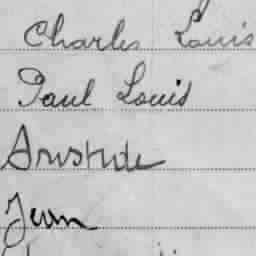 Charles Louis
Paul Louis
Aristide
Jean